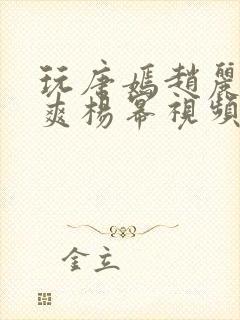 玩唐嫣趙麗
爽楊幂視頻
金立